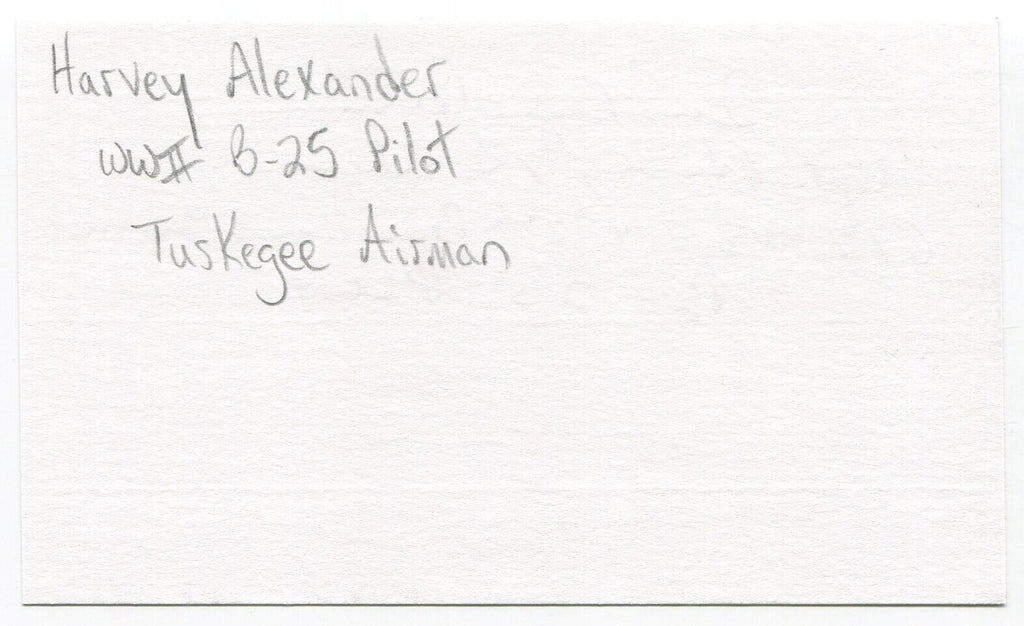 Harvey Alexander
WWII B-25 Pilot
Tuskegee Airman